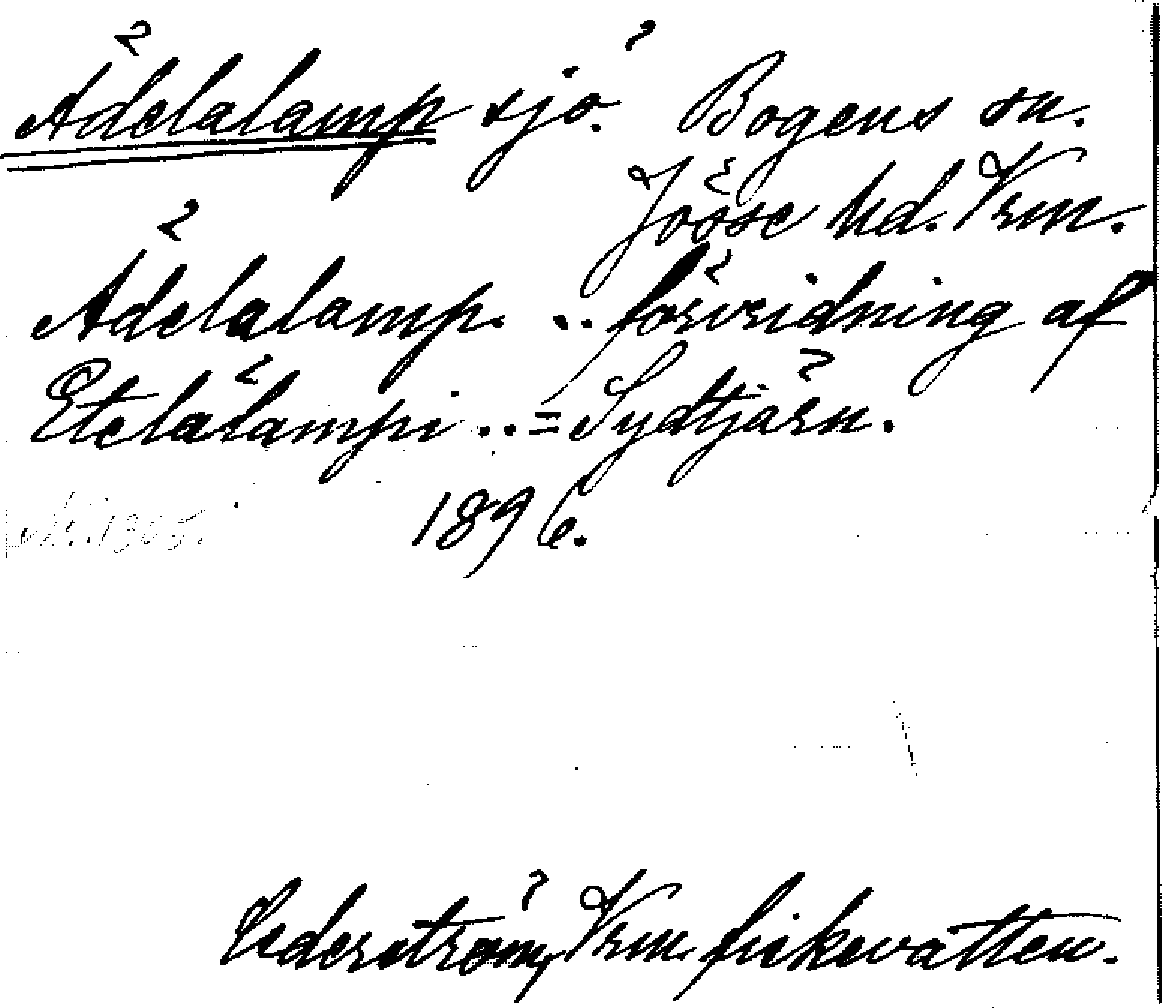 Ädelalamp sjö. Bogens sn.
Jösse hd. Vrm.
Ädelalamp. .. förvridning af
Etelälampi .. = Sydtjärn.
1896.
Cederström, Vrm. fiskevatten.